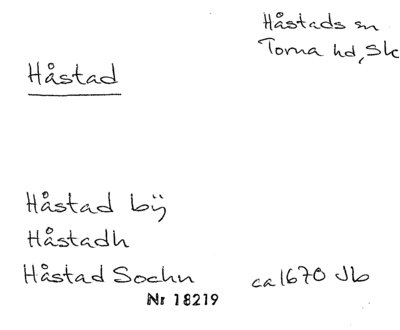 Håstads sn
Torna hd, Sk
Håstad
Håstad bÿ
Håstadh
Håstad Sochn ca 1670 Jb
Nr 18219